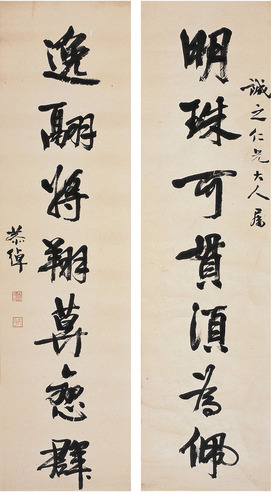 誠之仁兄大人屬
明珠可貫須為佩
逸翮將翔莫戀群
恭綽